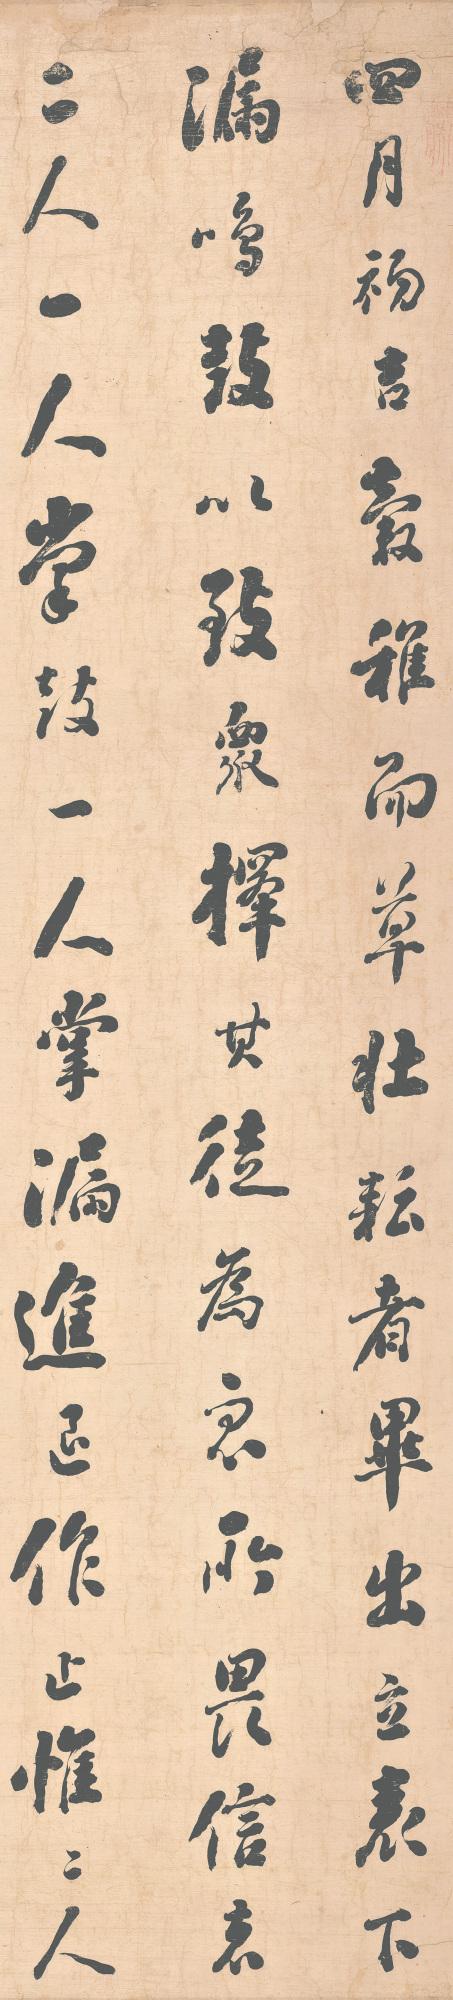 四月初吉穀稚而草壯耘者畢出立表下
漏鳴鼓以致眾擇其徒為眾所畏信者
二人一人掌鼓一人掌漏進退作止惟二人